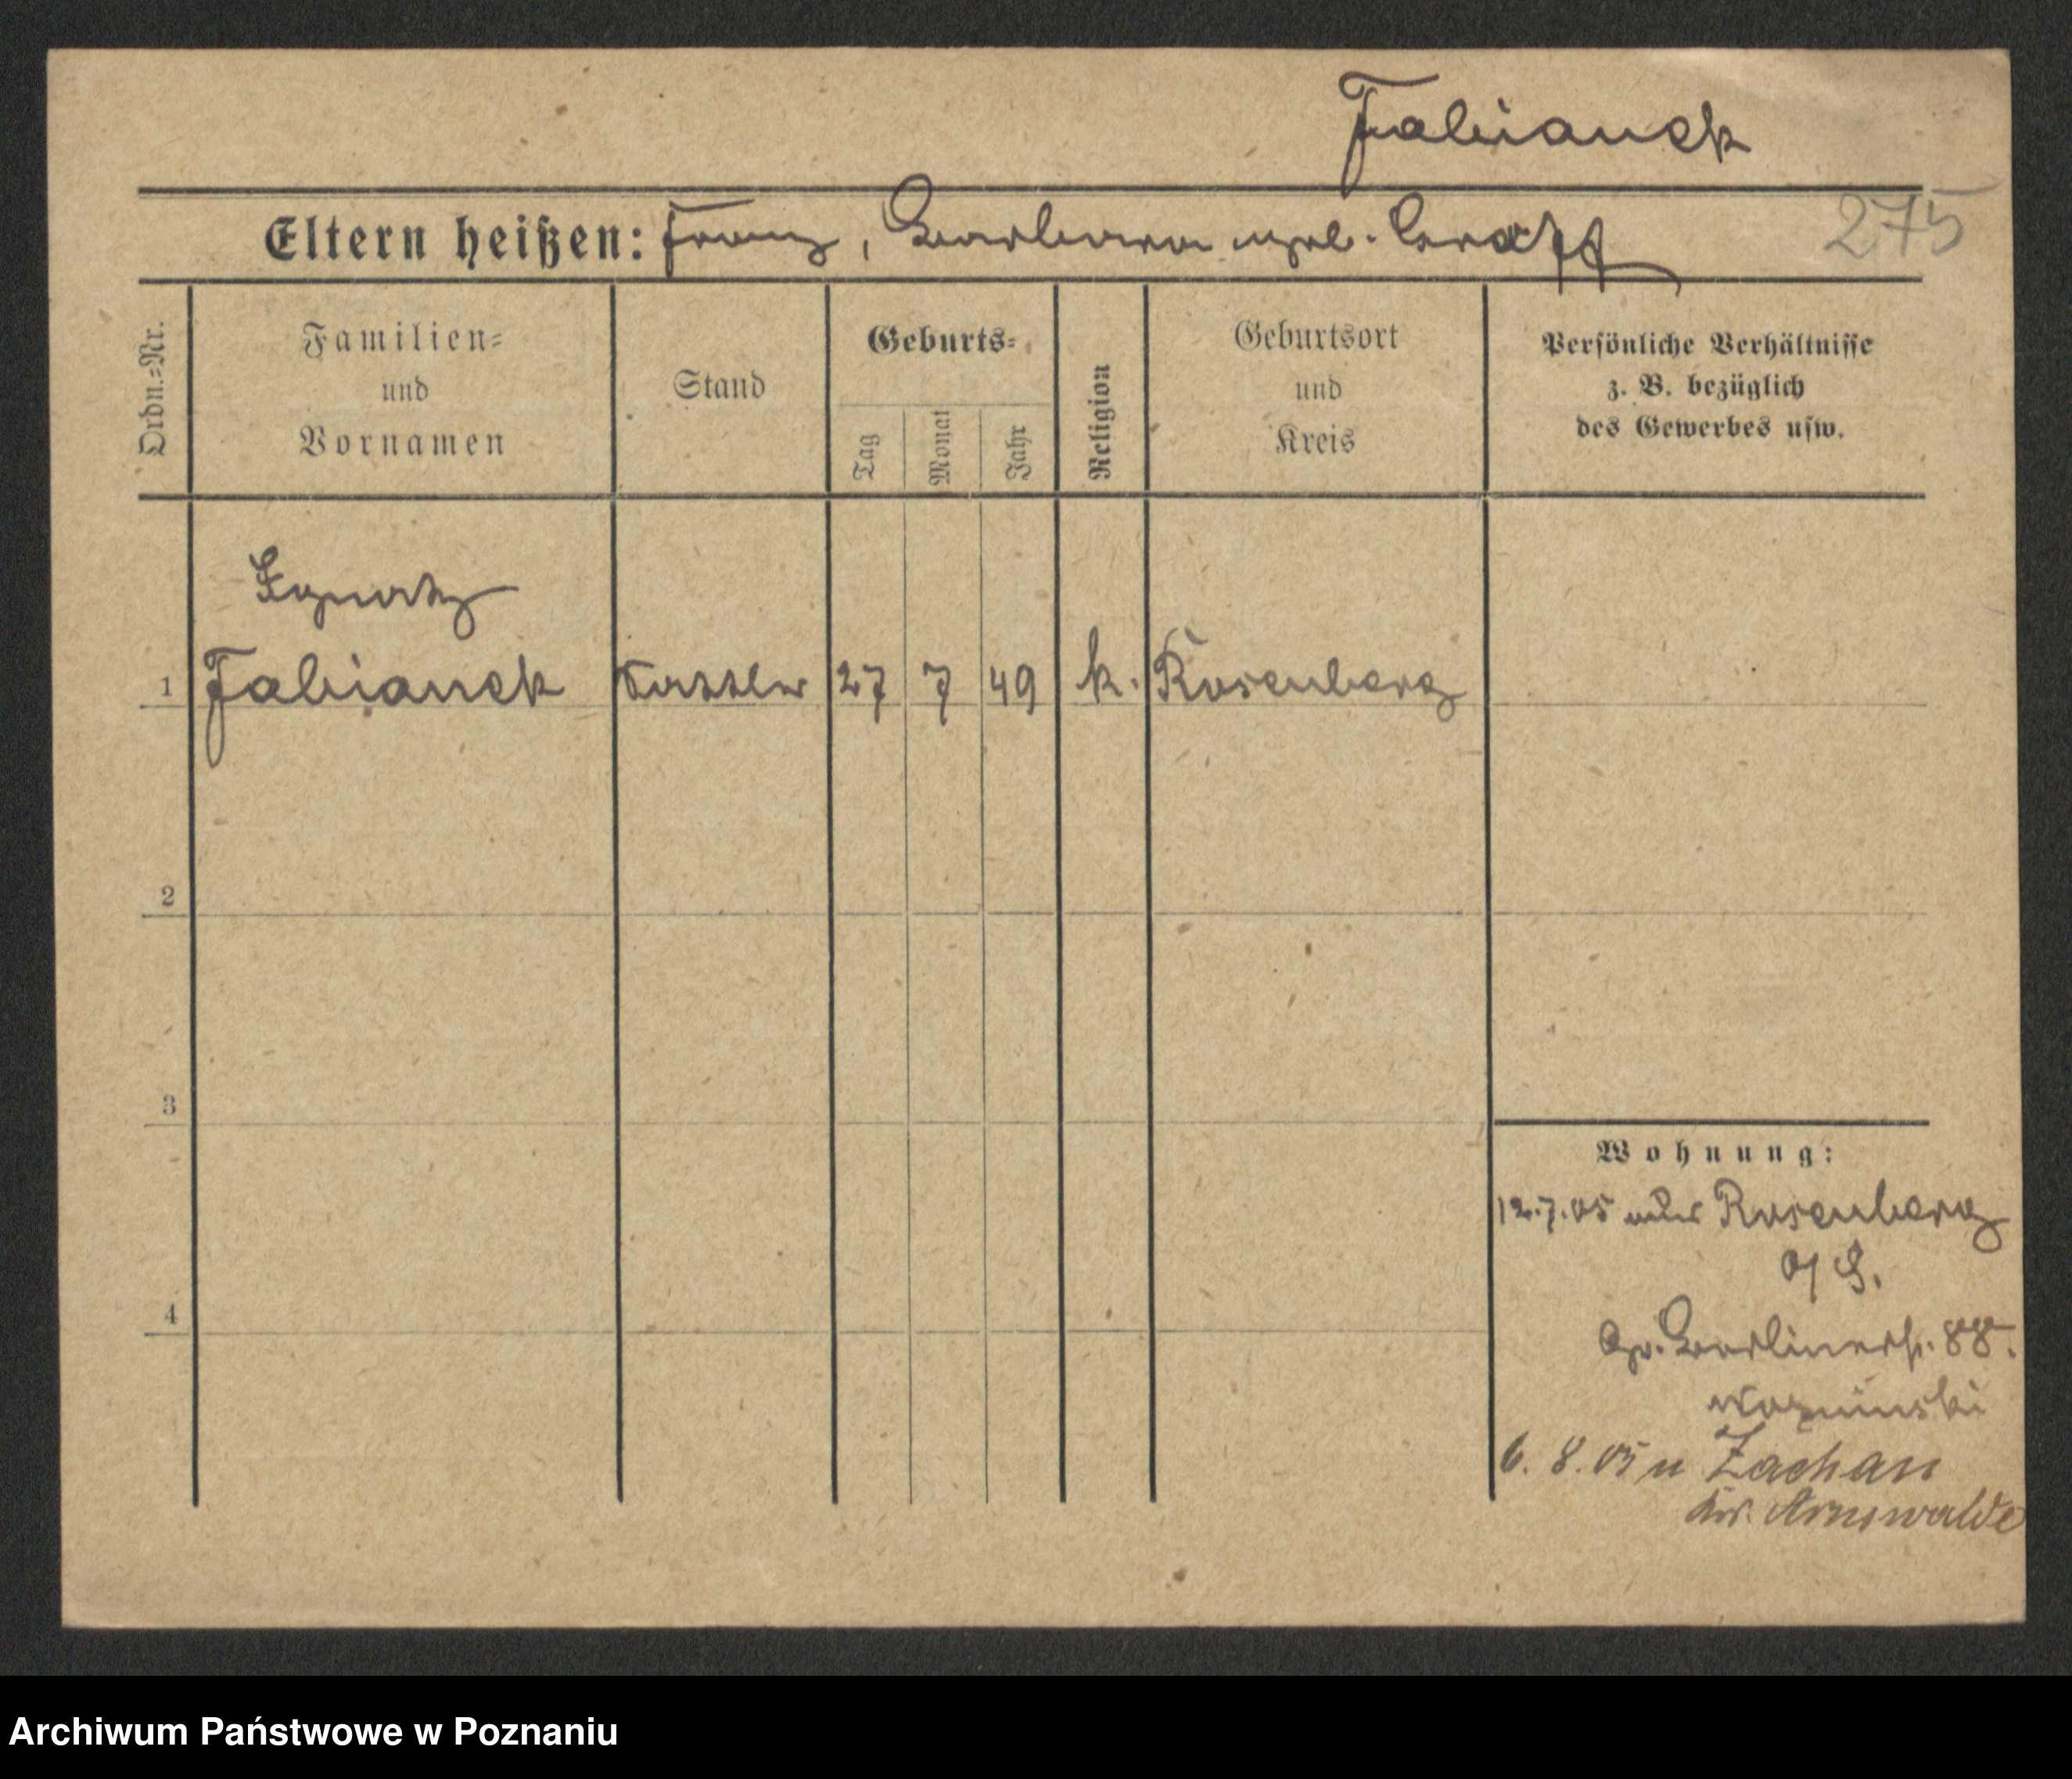 Fabianek
275
Eltern heißen: Franz, Barbara geb.
Ordn.-Nr.
Familien-
und
Vornamen
Stand
Geburts-
Tag
Monat
Jahr
Religion
Geburtsort
und
Kreis
Persönliche Verhältnisse
z. B. bezüglich
des Gewerbes usw.
Ignatz
1 Fabianek 27 7 49 k. Rosenberg
2
3
4
Wohnung:
12.7.05 aus Rosenberg
O/S.
Gr. Berlinerstr. 88.
6. 8. 05 n Zachan
Kr. Arnswalde
Archiwum Państwowe w Poznaniu